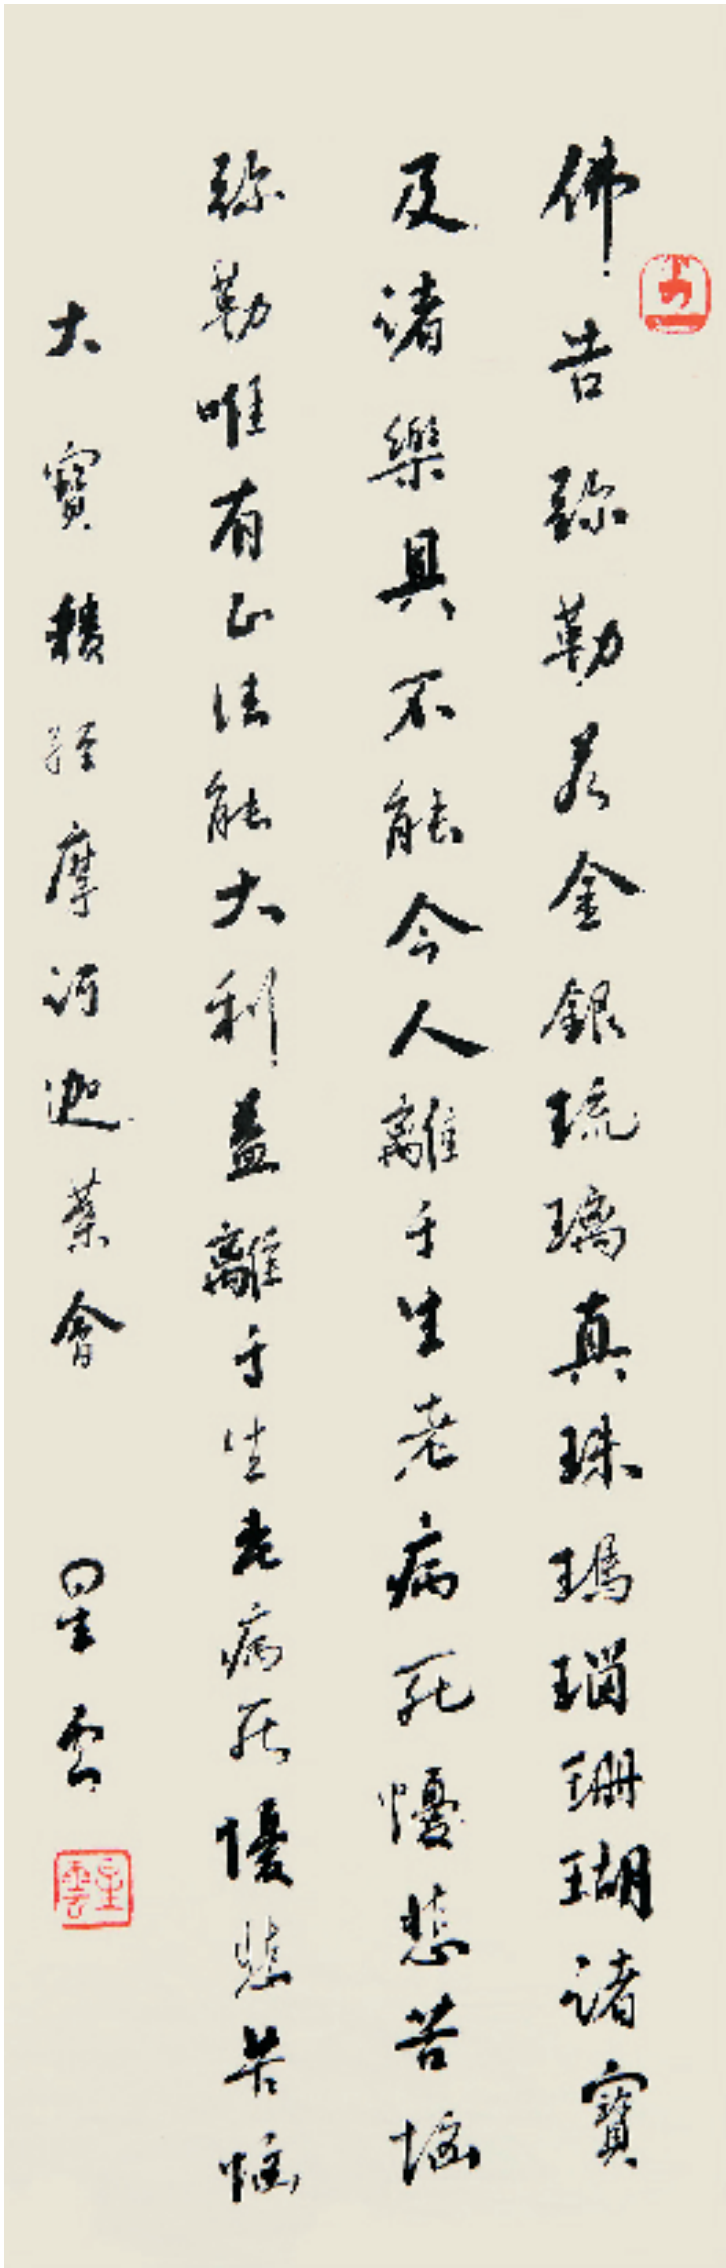 佛告弥勒若金銀琉璃真珠瑪瑙珊瑚諸寶
及諸樂具不能令人離于生老病死憂悲苦惱
弥勒唯有正法能大利益離于生老病死憂悲苦惱
大寶積經摩訶迦葉會
星雲
星雲